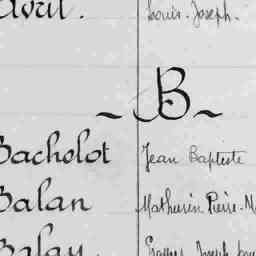 Avril. Louis. Joseph.
~ B ~
Bacholot Jean Baptiste
Balan Mathurin Pierre. M
Balay. Joseph